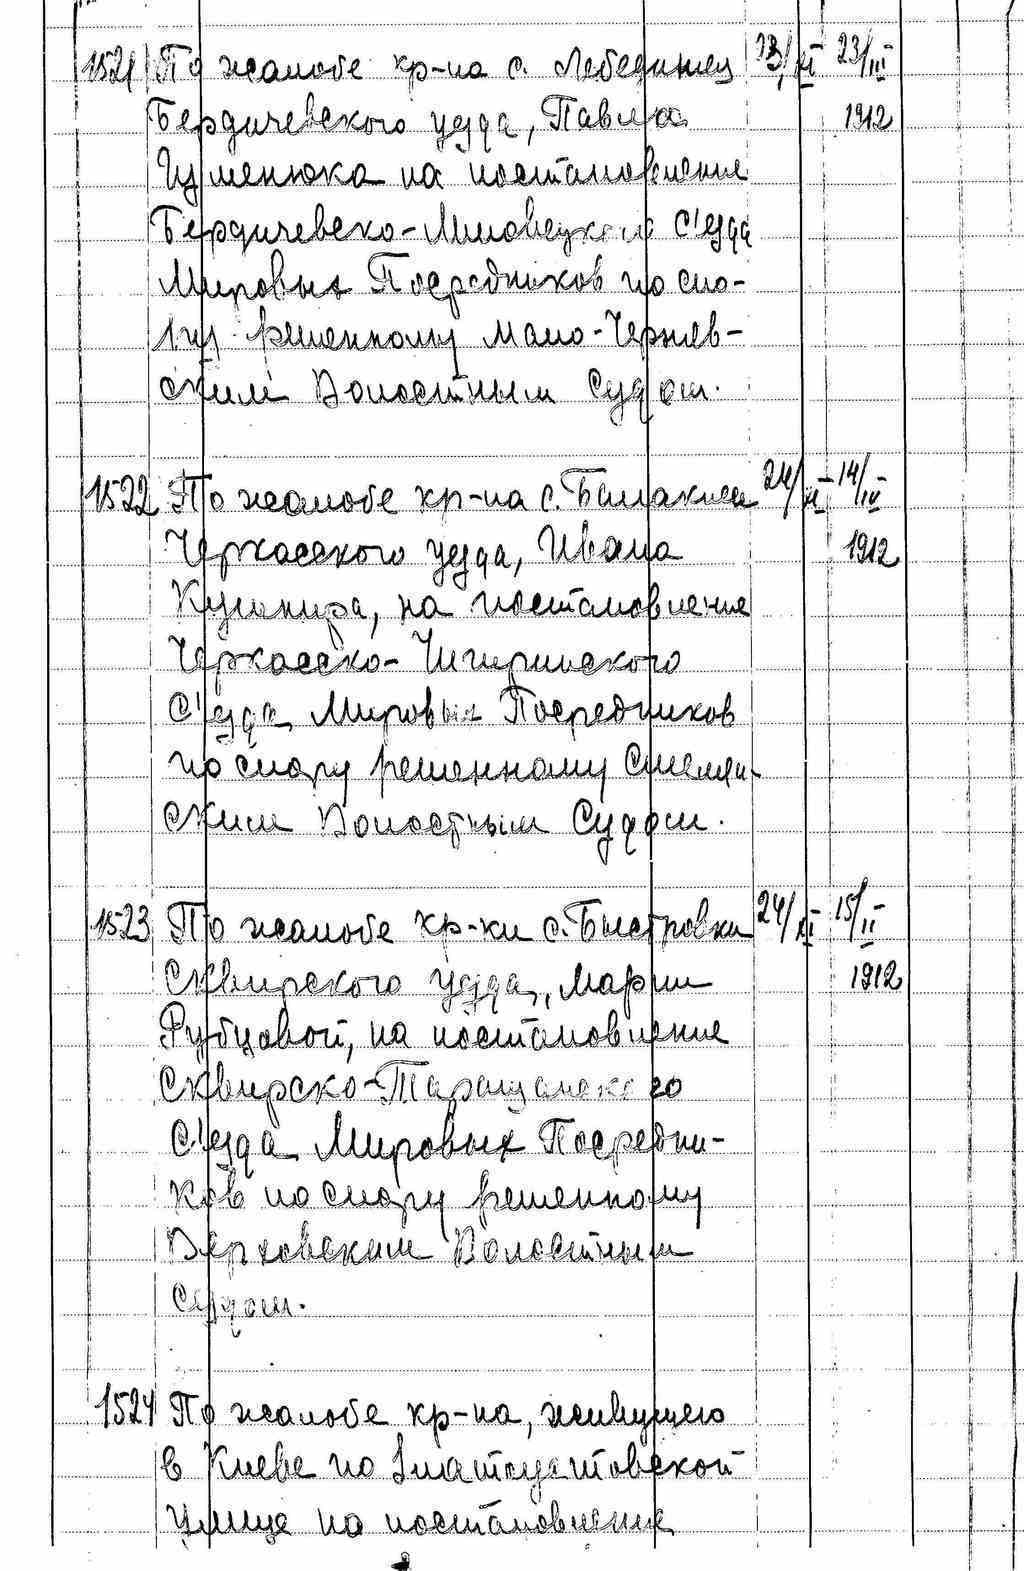 1521 По жалобе кр-на с. Лебединец 23/XI 23/III
Бердичевского уезда, Павла 1912
Гуменюка на постановление
Бердичевско-Липовецкого С'езда
Мировых Посредников по спо-
ру решенному Мало-Черняв-
ским Волостным Судом.
1522 По жалобе кр-на с. Балаклеи 24/XI 14/IV
Черкасского уезда, Ивана 1912
Кушнира, на постановление
Черкасско-Чигиринского
С'езда Мировых Посредников
по спору решенному Смелян-
ским Волостным Судом.
1523 По жалобе кр-ки с. Быстровки 24/XI 15/II
Сквирского уезда, Марии 1912
Рубцовой, на постановление
Сквирско-Таращанского
С'езда Мировых Посредни-
ков по спору решенному
Верховским Волостным
Судом.
1524 По жалобе кр-на, живущего
в Киеве по Златоустовской
улице на постановление